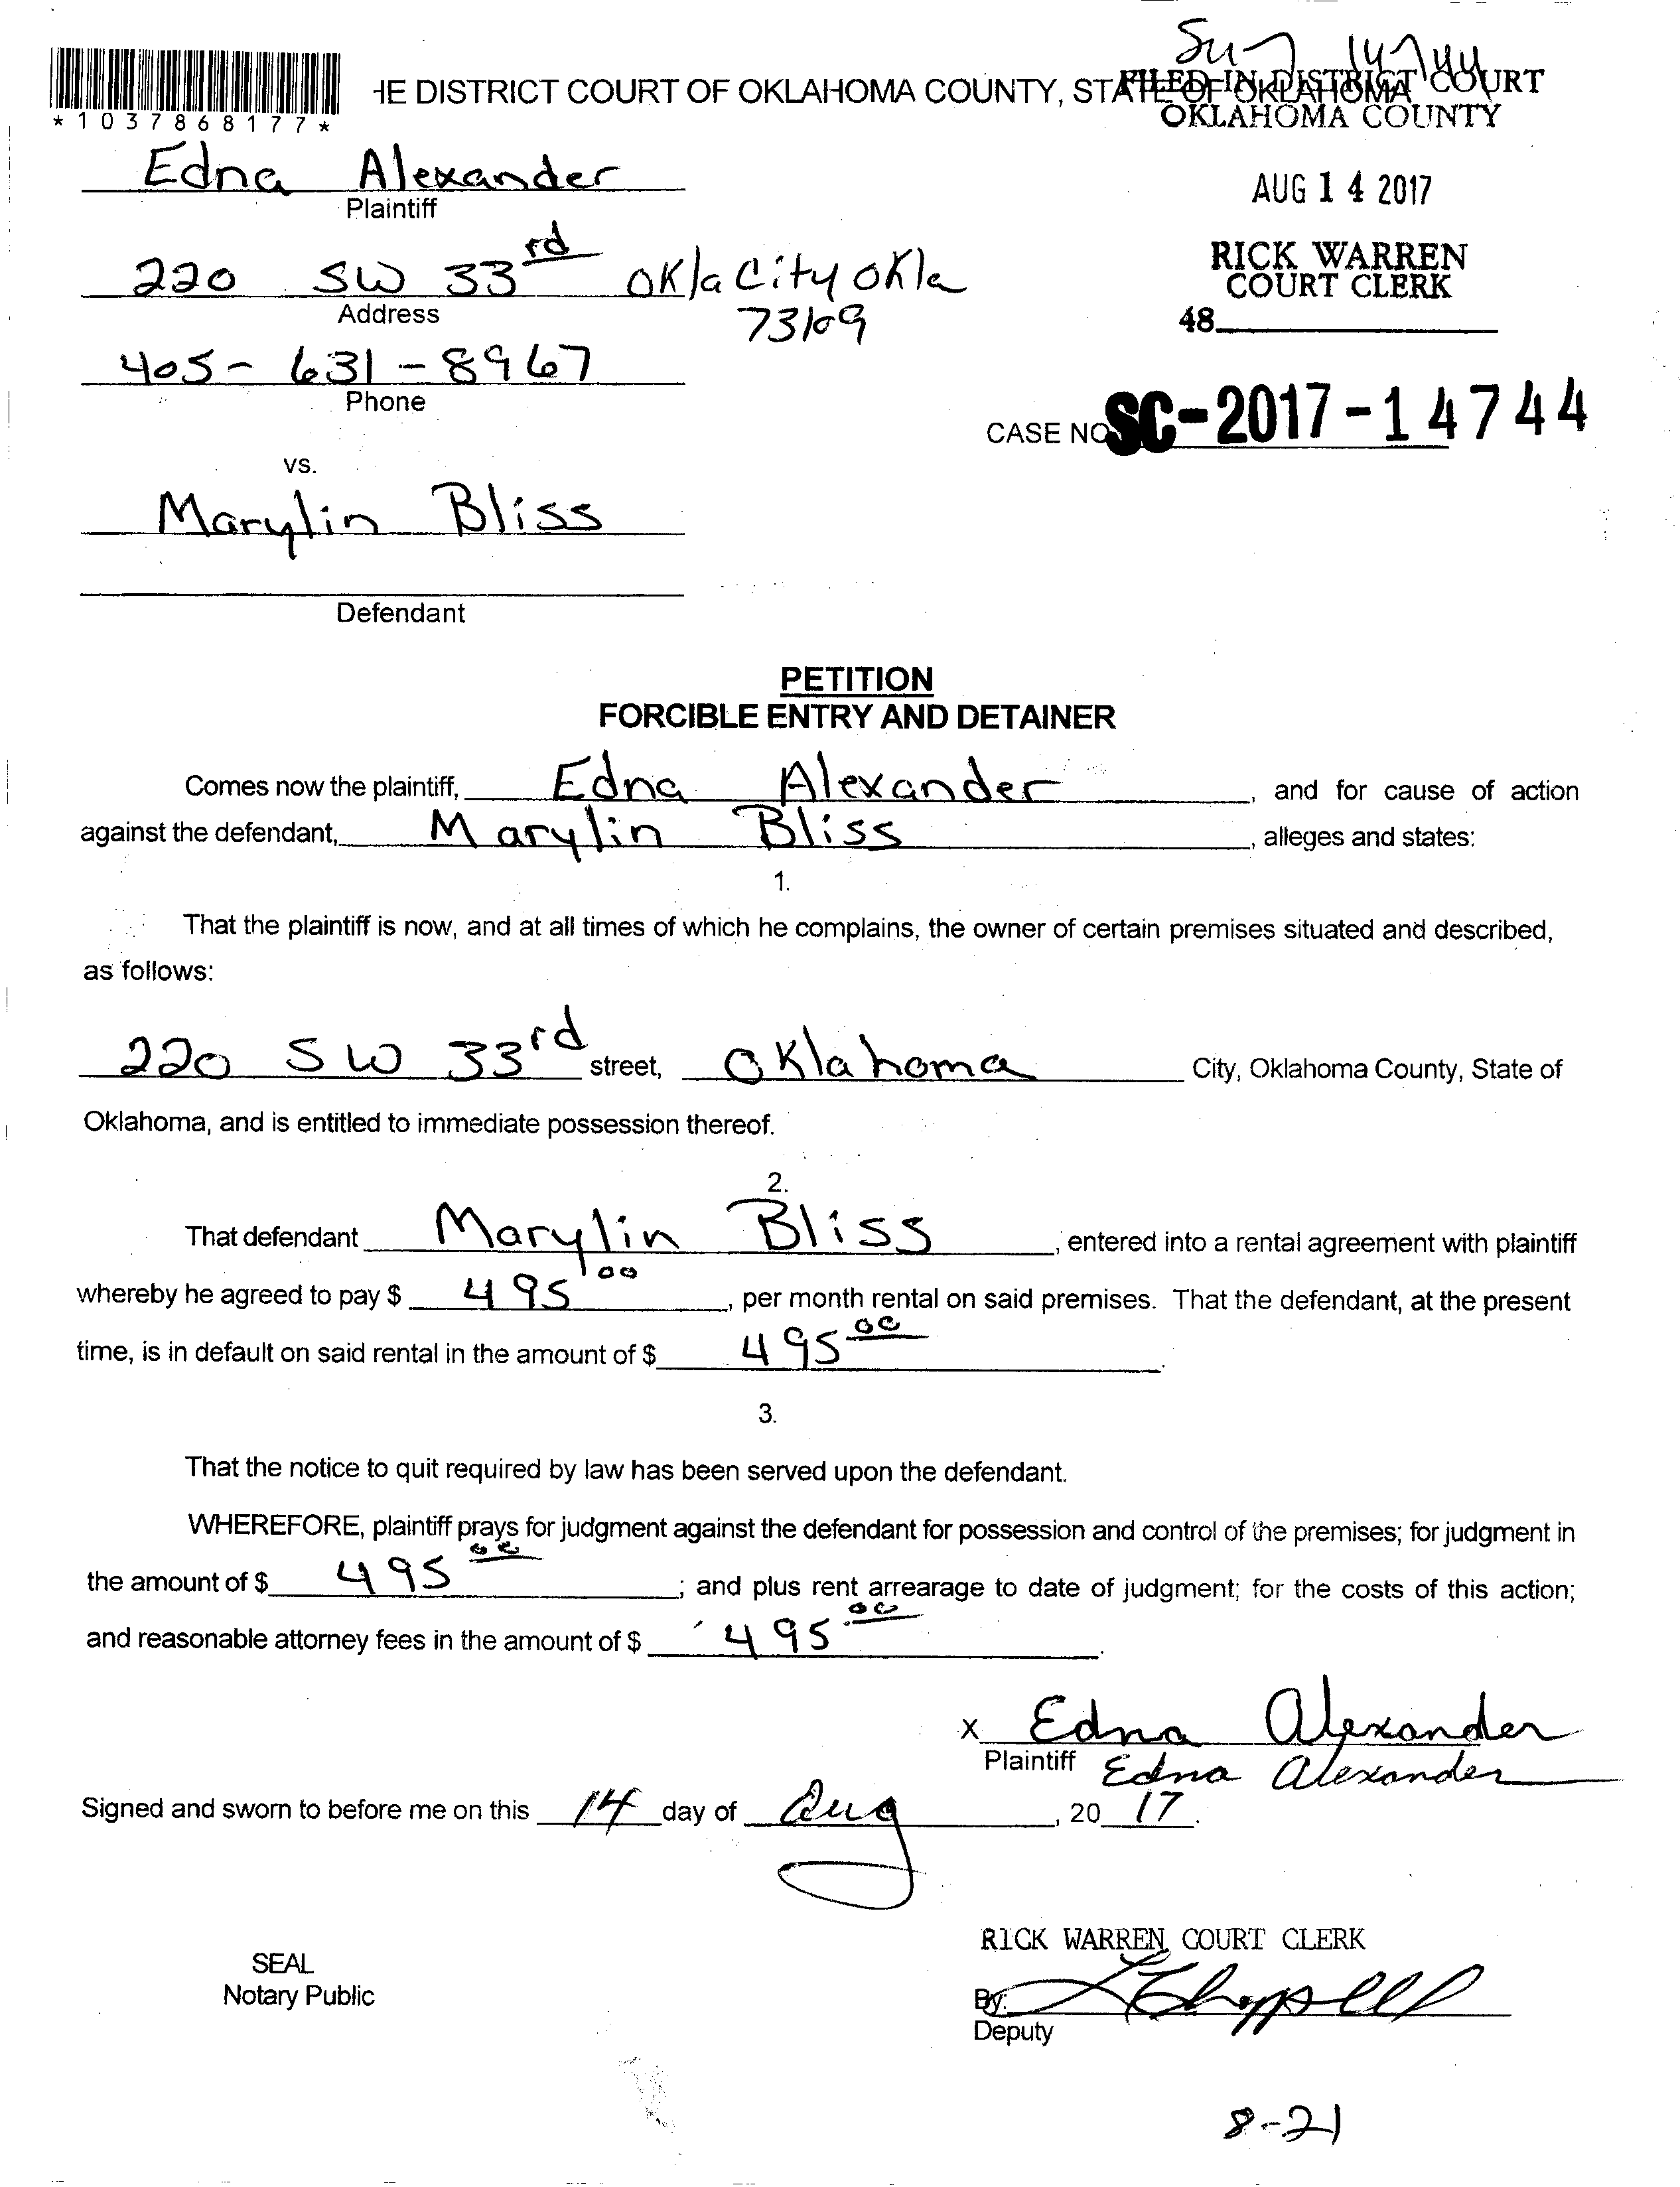 HE DISTRICT COURT OF OKLAHOMA COUNTY, STATE OF OKLAHOMA
FILED IN DISTRICT COURT
OKLAHOMA COUNTY
*1037868177*
Edna Alexander
Plaintiff
AUG 14 2017
220 SW 33rd Okla City Okla
73109
Address
RICK WARREN
COURT CLERK
48
405-631-8967
Phone
CASE NO SC-2017-14744
vs.
Marylin Bliss
Defendant
PETITION
FORCIBLE ENTRY AND DETAINER
Comes now the plaintiff, Edna Alexander, and for cause of action
against the defendant, Marylin Bliss, alleges and states:
1.
That the plaintiff is now, and at all times of which he complains, the owner of certain premises situated and described,
as follows:
220 SW 33rd street, Oklahoma City, Oklahoma County, State of
Oklahoma, and is entitled to immediate possession thereof.
2.
That defendant Marylin Bliss, entered into a rental agreement with plaintiff
whereby he agreed to pay $ 495 00, per month rental on said premises. That the defendant, at the present
time, is in default on said rental in the amount of $ 495 00.
3.
That the notice to quit required by law has been served upon the defendant.
WHEREFORE, plaintiff prays for judgment against the defendant for possession and control of the premises; for judgment in
the amount of $ 495 00; and plus rent arrearage to date of judgment; for the costs of this action;
and reasonable attorney fees in the amount of $ 495 00.
X Edna Alexander
Plaintiff Edna Alexander
Signed and sworn to before me on this 14 day of Aug, 20 17.
RICK WARREN COURT CLERK
SEAL
Notary Public
By:
Deputy
8-21